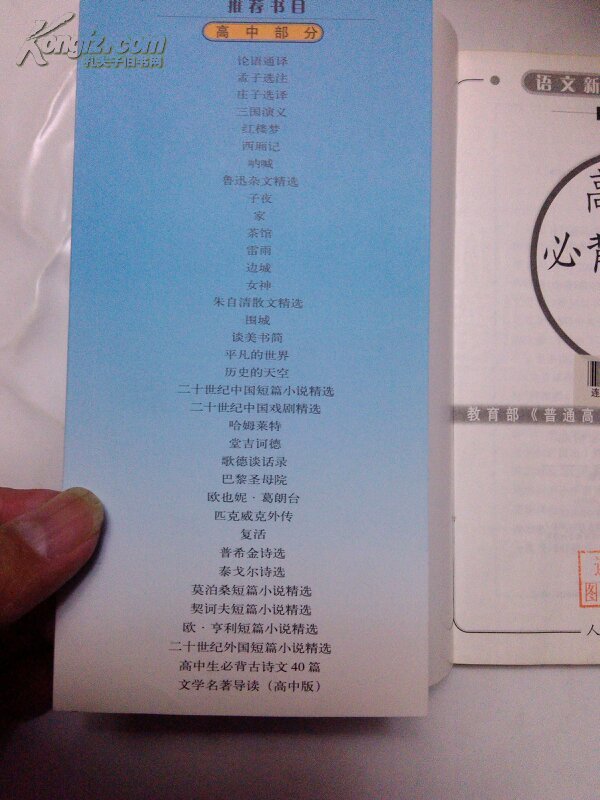 Kongfz.com
孔夫子旧书网
推荐书目
高中部分
论语通译
孟子选注
庄子选译
三国演义
红楼梦
西厢记
呐喊
鲁迅杂文精选
子夜
家
茶馆
雷雨
边城
女神
朱自清散文精选
围城
谈美书简
平凡的世界
历史的天空
二十世纪中国短篇小说精选
二十世纪中国戏剧精选
哈姆莱特
堂吉诃德
歌德谈话录
巴黎圣母院
欧也妮·葛朗台
匹克威克外传
复活
普希金诗选
泰戈尔诗选
莫泊桑短篇小说精选
契诃夫短篇小说精选
欧·亨利短篇小说精选
二十世纪外国短篇小说精选
高中生必背古诗文40篇
文学名著导读（高中版）
语文新
高
必背
教育部《普通高
图
人